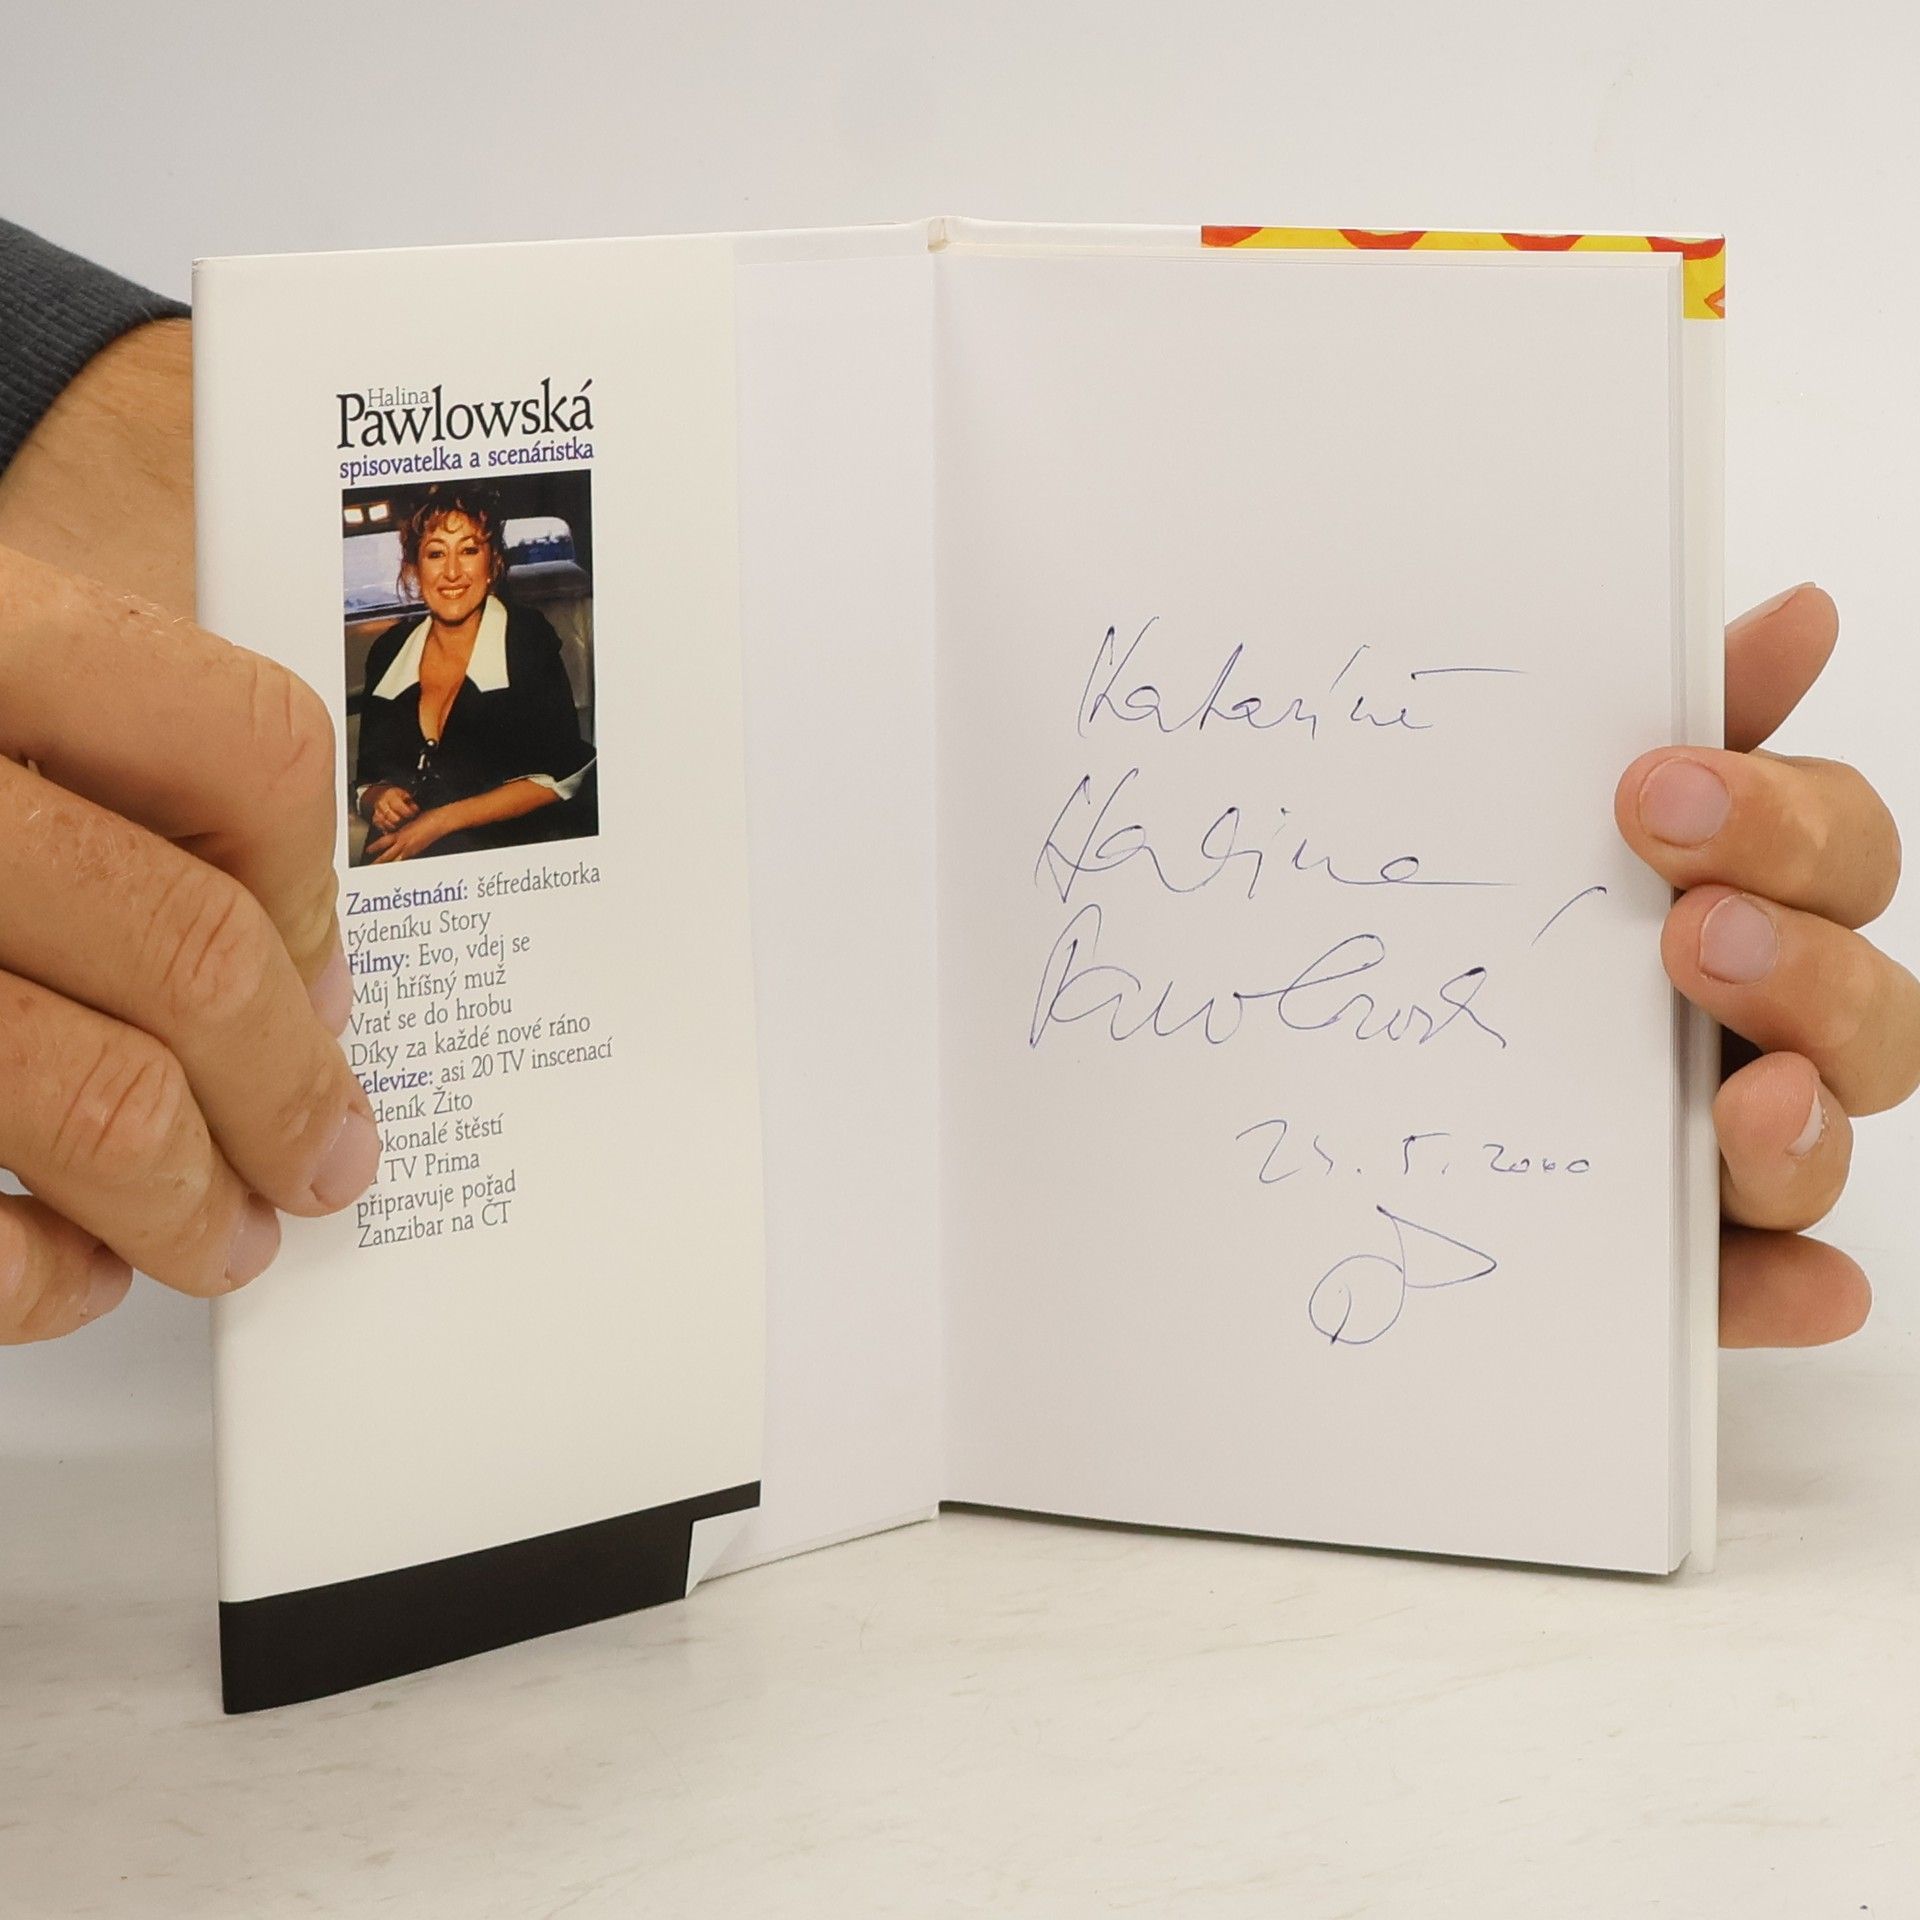 Halina
Pawlowská
spisovatelka a scenáristka
Zaměstnání: šéfredaktorka
týdeníku Story
Filmy: Evo, vdej se
Můj hříšný muž
Vrať se do hrobu
Díky za každé nové ráno
Televize: asi 20 TV inscenací
deník Žito
okonalé štěstí
TV Prima
připravuje pořad
Zanzibar na ČT
Kateřině
Halina
Pawlowská
5. 2000